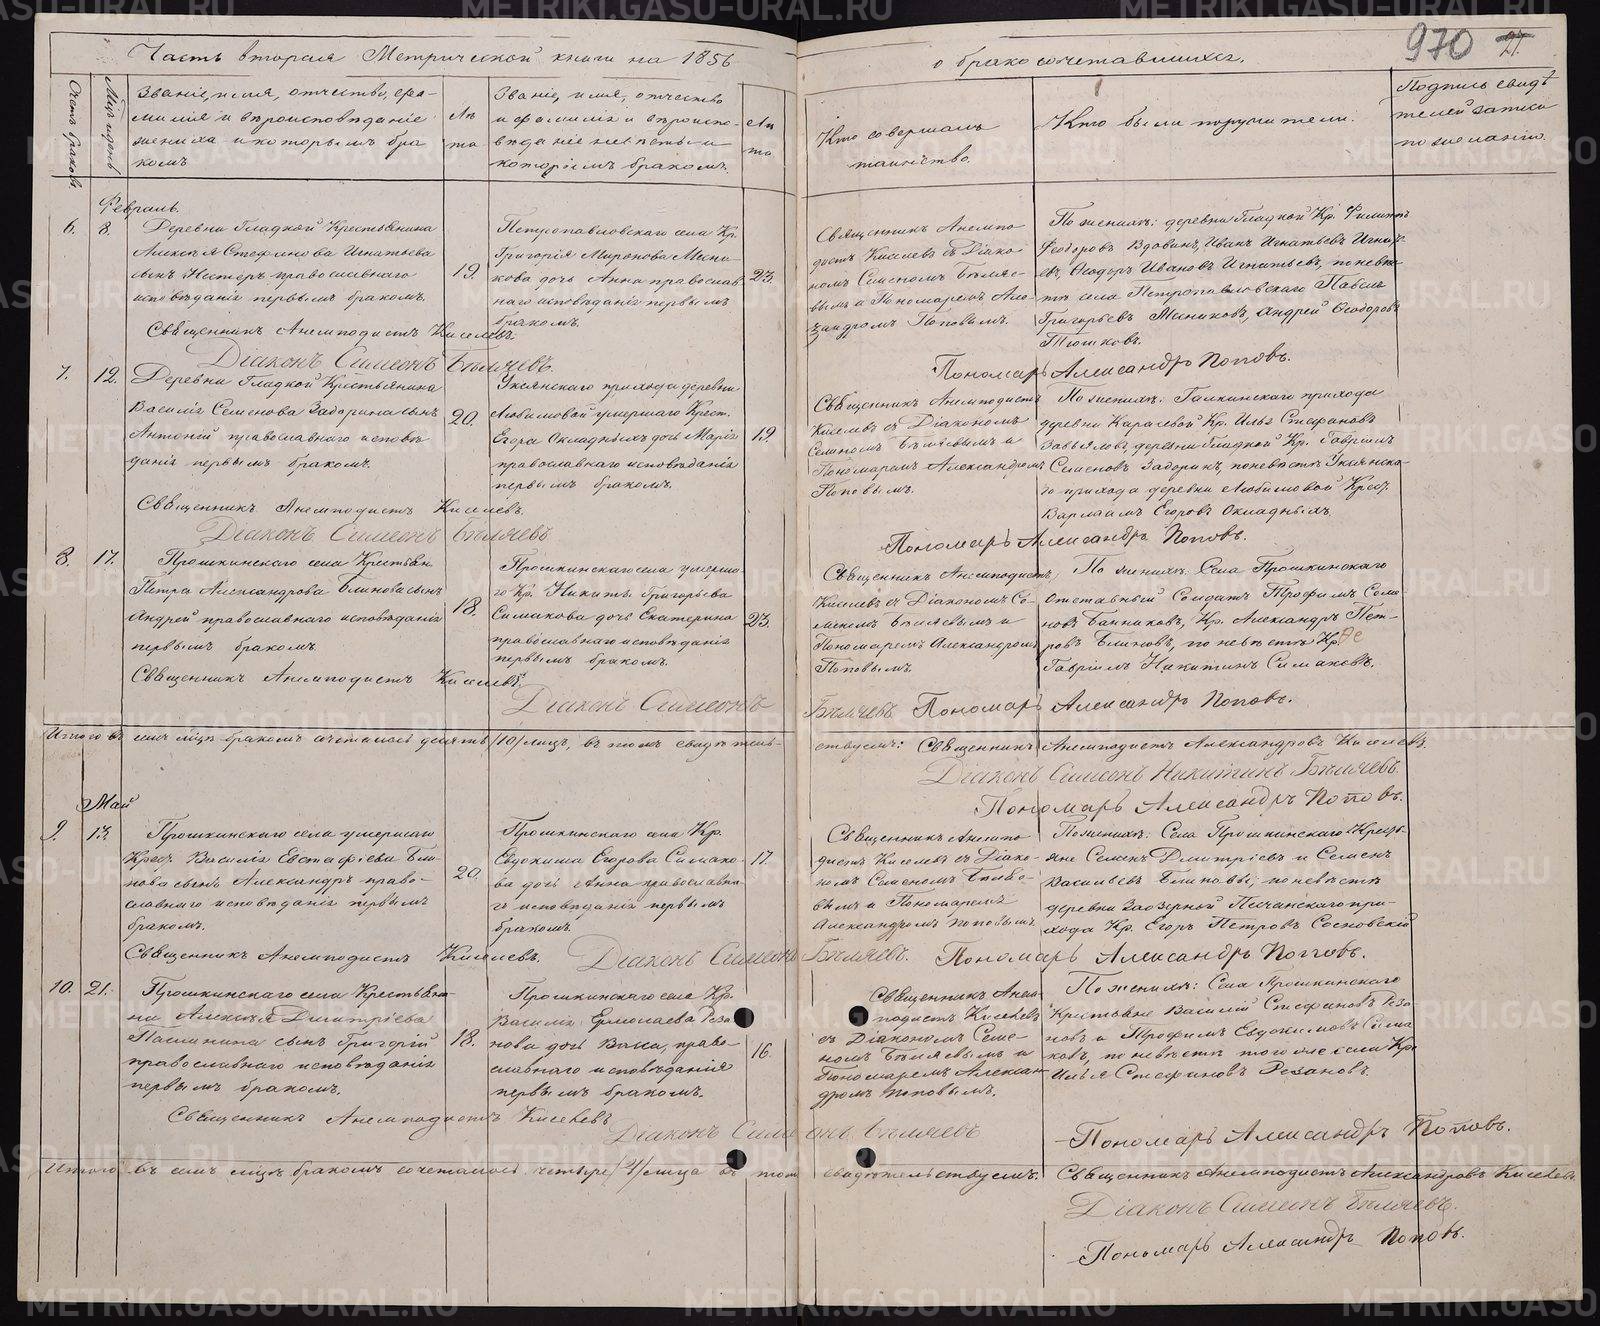 Часть вторая Метрической книги на 1856
о бракосочетавшихся.
970
27.
Счетъ браковъ
Мѣц. и день
Званіе, имя, отчество, фа-
милія и вѣроисповѣданіе
жениха и которымъ бра
комъ
Лѣ
та
Званіе, имя, отчество
и фамилія и вѣроиспо-
вѣданіе невѣсты и
которымъ бракомъ.
Лѣ
та
Кто совершалъ
таинство.
Кто были поручители.
Подпись свидѣ
телей записи
по желанію.
Февраль.
6.
8.
Деревни Гладкой Крестьянина
Алексѣя Стефанова Игнатьева
сынъ Нестеръ православнаго
исповѣданія первымъ бракомъ.
19.
Петропавловскаго села Кр.
Григорія Миронова Мясни
кова дочь Анна православ
наго исповѣданія первымъ
бракомъ.
23.
Священникъ Анемпо
дистъ Киселевъ съ Діако
номъ Симеономъ Бѣляе-
вымъ и Пономаремъ Але-
ксандромъ Поповымъ.
По женихѣ: деревни Гладкой Кр. Филиппъ
Феодоровъ Вдовинъ, Иванъ Игнатьевъ Игнать
евъ, Феодоръ Ивановъ Игнатьевъ, по невѣс
тѣ села Петропавловскаго Павелъ
Григорьевъ Мясниковъ, Андрей Феодоровъ
Тюшковъ.
Священникъ Анемподистъ Киселевъ.
Діаконъ Симеонъ Бѣляевъ.
Пономарь Александръ Поповъ.
7.
12.
Деревни Гладкой Крестьянина
Василія Семенова Задорина сынъ
Антоній православнаго исповѣ
данія первымъ бракомъ.
20.
Уксянскаго прихода деревни
Любимовой умершаго Крест.
Егора Окладныхъ дочь Марія
православнаго исповѣданія
первымъ бракомъ.
19.
Священникъ Анемподистъ
Киселевъ съ Діакономъ
Семеномъ Бѣляевымъ и
Пономаремъ Александромъ
Поповымъ.
По женихѣ: Галкинскаго прихода
деревни Карачевой Кр. Илья Стефановъ
Завьяловъ, деревни Гладкой Кр. Гавріилъ
Семеновъ Задоринъ, по невѣстѣ Уксянска-
го прихода деревни Любимовой Крест.
Варлаамъ Егоровъ Окладныхъ.
Священникъ Анемподистъ Киселевъ.
Діаконъ Симеонъ Бѣляевъ
Пономарь Александръ Поповъ.
8.
17.
Прошкинскаго села Крестьян.
Петра Александрова Блинова сынъ
Андрей православнаго исповѣданія
первымъ бракомъ.
18.
Прошкинскаго села умерша
го Кр. Никиты Григорьева
Симакова дочь Екатерина
православнаго исповѣданія
первымъ бракомъ.
23.
Священникъ Анемподистъ
Киселевъ съ Діакономъ Се-
меномъ Бѣляевымъ и
Пономаремъ Александромъ
Поповымъ
По женихѣ: Села Прошкинскаго
отставный Солдатъ Трофимъ Семе-
новъ Банниковъ, Кр. Александръ Пет-
ровъ Блиновъ, по невѣстѣ Кр.
Гавріилъ Никитинъ Симаковъ.
Священникъ Анемподистъ Киселевъ.
Діаконъ Симеонъ Бѣляевъ Пономарь Александръ Поповъ.
Итого въ семъ мѣцѣ бракомъ сочеталось десять /10/ лицъ, въ томъ свидѣтель-
ствуемъ: Священникъ Анемподистъ Александровъ Киселевъ
Діаконъ Симеонъ Никитинъ Бѣляевъ.
Пономарь Александръ Поповъ.
Май
9.
13.
Прошкинскаго села умершаго
Крест. Василія Евстафіева Бли-
нова сынъ Александръ право-
славнаго исповѣданія первымъ
бракомъ.
20.
Прошкинскаго села Кр.
Евдокима Егорова Симако-
ва дочь Анна православна-
го исповѣданія первымъ
бракомъ.
17.
Священникъ Анемпо
дистъ Киселевъ съ Діако-
номъ Семеномъ Бѣляе-
вымъ и Пономаремъ
Александромъ Поповымъ.
По женихѣ: Села Прошкинскаго Кресть-
яне Семенъ Дмитріевъ и Семенъ
Васильевъ Блиновы; по невѣстѣ
деревни Заозерной Песчанскаго при-
хода Кр. Егоръ Петровъ Сосновскій
Священникъ Анемподистъ Киселевъ. Діаконъ Симеонъ Бѣляевъ. Пономарь Александръ Поповъ.
10.
21.
Прошкинскаго села Крестьяни-
на Алексѣя Дмитріева
Пашнина сынъ Григорій
православнаго исповѣданія
первымъ бракомъ.
18.
Прошкинскаго села Кр.
Василія Ермолаева Реза
нова дочь Васса, право-
славнаго исповѣданія
первымъ бракомъ.
16.
Священникъ Анем-
подистъ Киселевъ
съ Діакономъ Семе-
номъ Бѣляевымъ и
Пономаремъ Алексан-
дромъ Поповымъ.
По женихѣ: Села Прошкинскаго
Крестьяне Василій Стефановъ Реза
новъ и Трофимъ Евдокимовъ Сима
ковъ, по невѣстѣ того же села Кр.
Илья Стефановъ Резановъ.
Священникъ Анемподистъ Киселевъ
Діаконъ Симеонъ Бѣляевъ
Пономарь Александръ Поповъ.
Итого въ семъ мѣцѣ бракомъ сочеталось четыре /4/ лица въ томъ
свидѣтельствуемъ. Священникъ Анемподистъ Александровъ Киселевъ.
Діаконъ Симеонъ Бѣляевъ.
Пономарь Александръ Поповъ.
METRIKI.GASO-URAL.RU